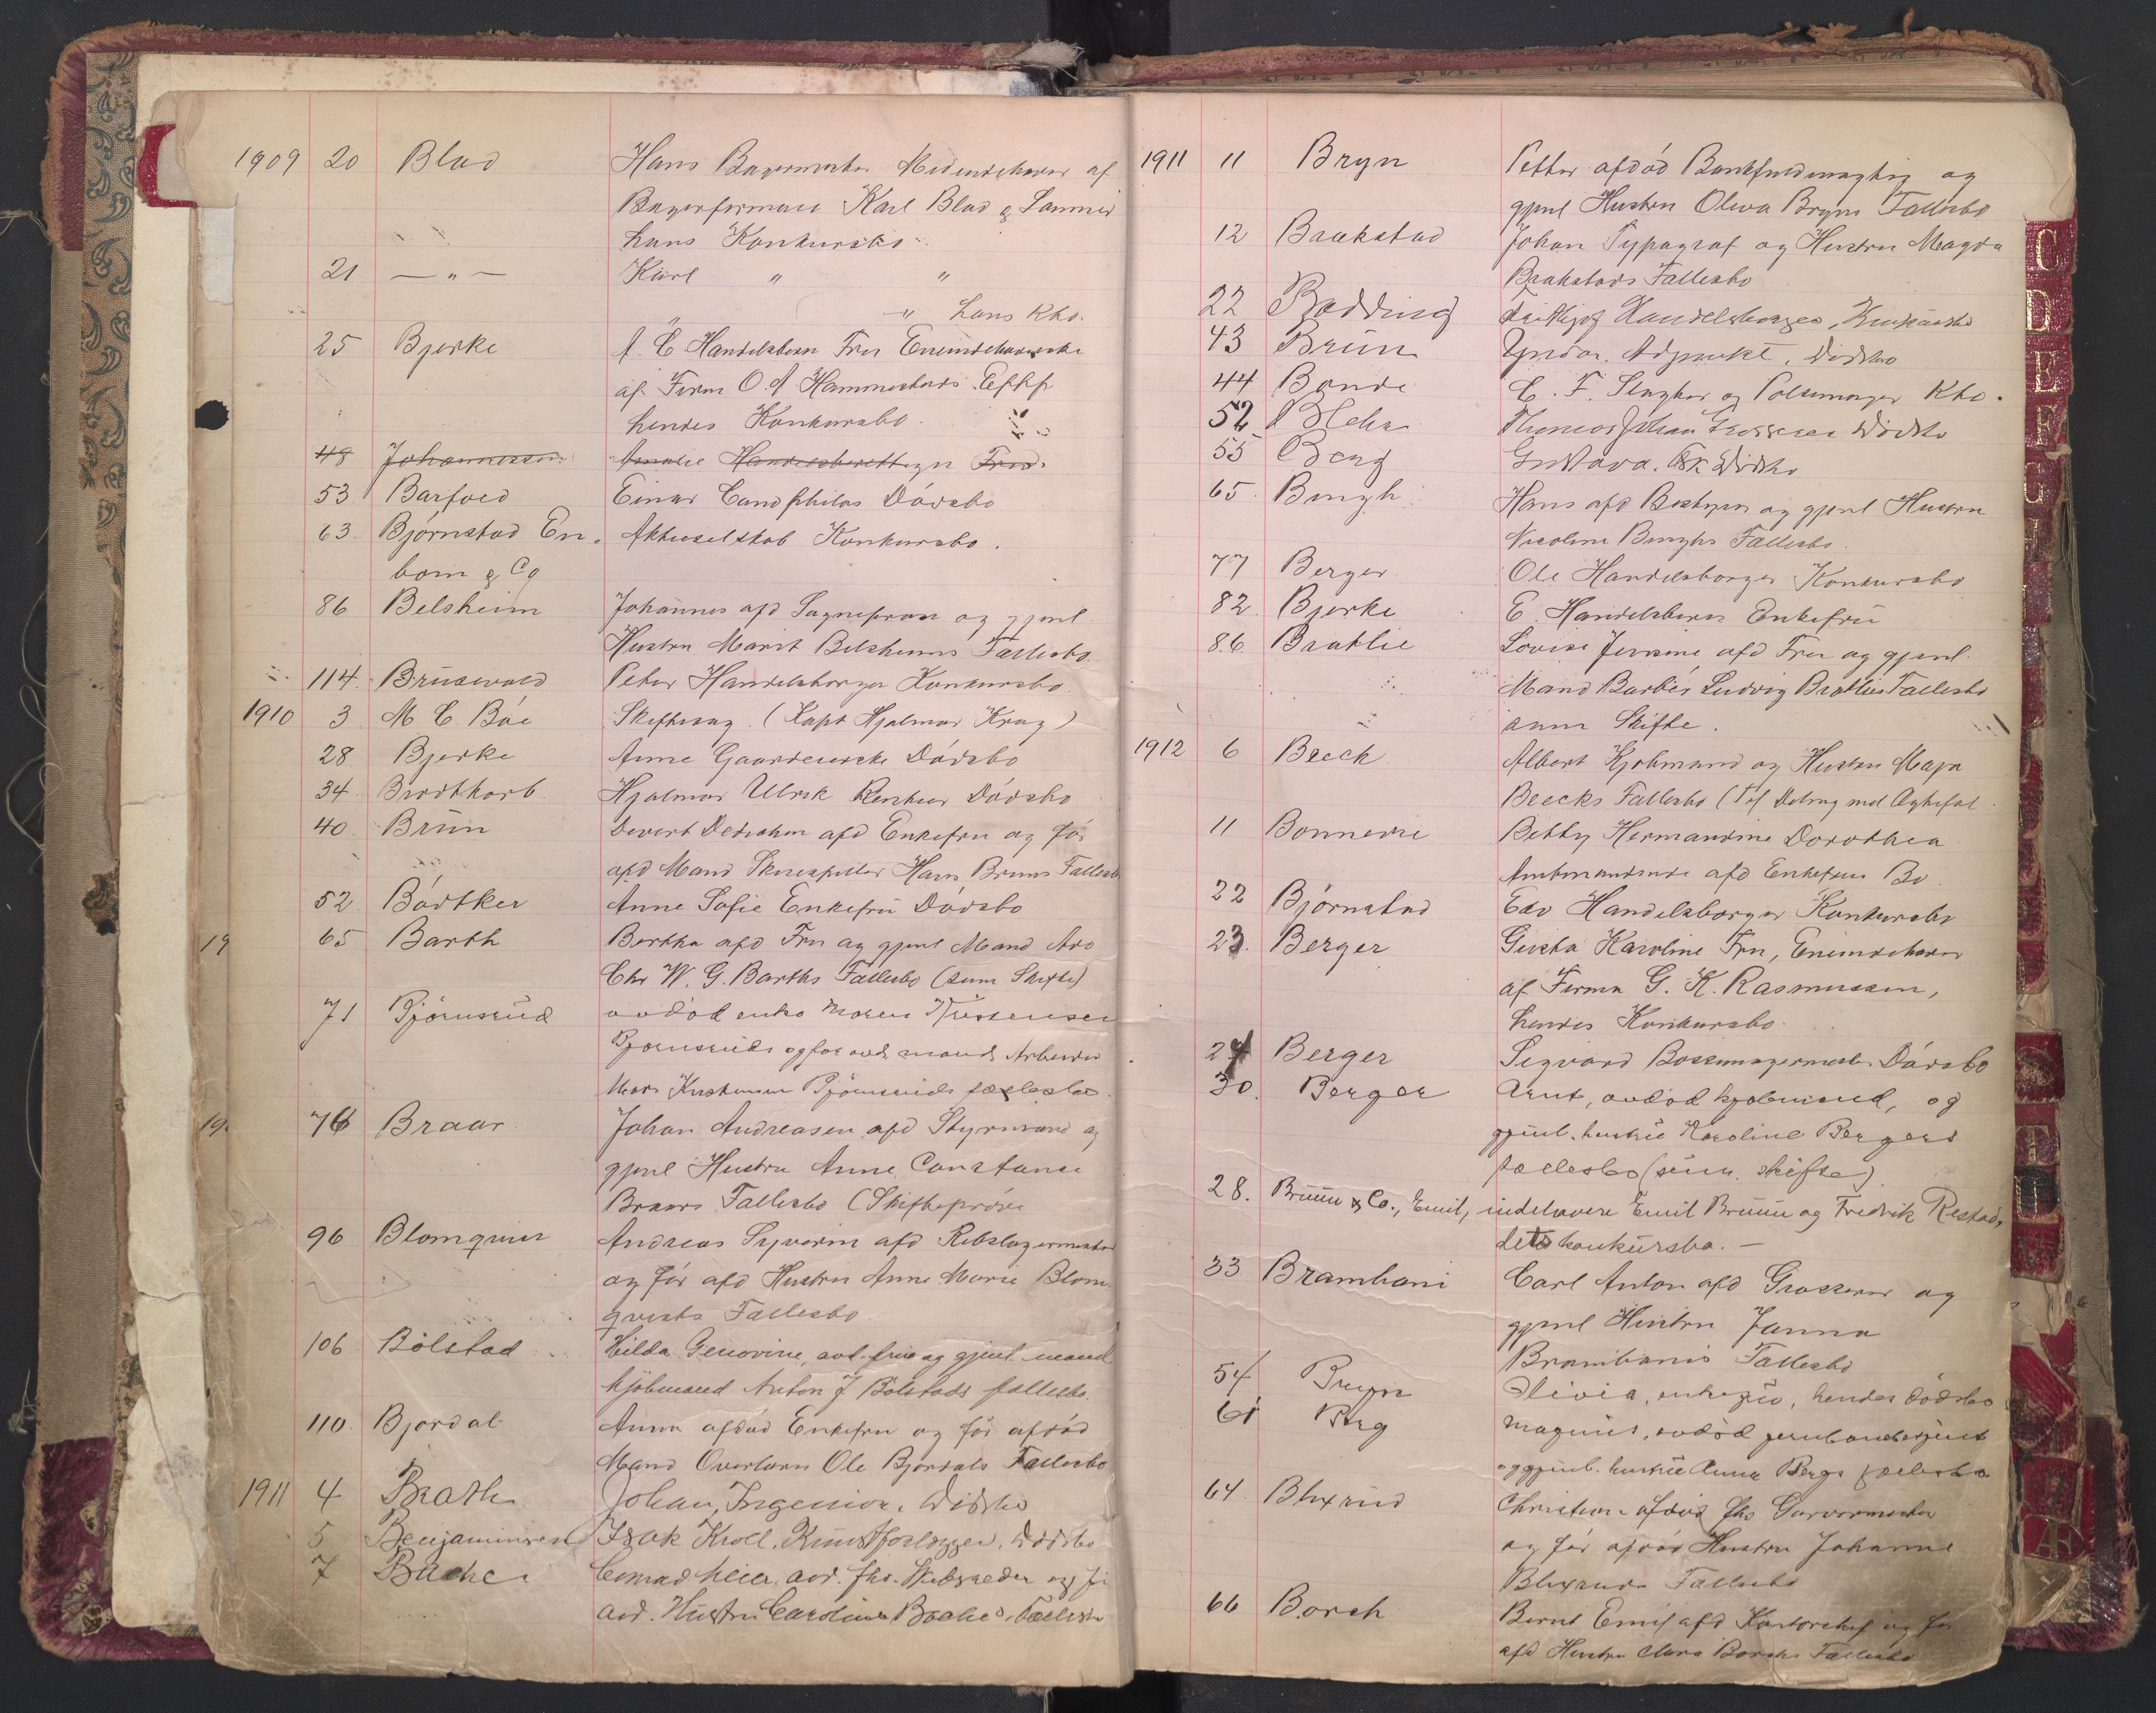 1909 20 Blad Hans Bagermester Medindehaver af
Bagerfirmaet Karl Blad & Sønner
hans Konkursbo
21 — " — Karl " "
" " hans Kbo.
25 Bjerke A. C Handelsbern Fru Eneindehaverske
af Firm O. A Hammerstads Eftf
hendes Konkursbo
48 Johannessen Amalie Handelsberettigen Frø.
53 Barfoed Einar Cand philos Dödsbo
63. Björnstad En. Aktieselskab Konkursbo.
bom & Co
86 Belsheim Johannes afd Sogneprest og gjenl
Hustru Marit Belsheims Fællesbo
114. Brüsewold Peter Handelsborger Konkursbo.
1910 3 M C Böe Skiftesag. (Kapt Hjalmar Krag)
28 Bjerke Anne Gaardeierske Dödsbo
34 Brodtkorb Hjalmar Ulrik Dödsbo
40. Brün Devert Dedichen afd Enkefru og för
afd Mand Skuespiller Hans Bruns Fællesb
52. Bödtker Anne Sofie Enkefrü Dödsbo
19 65 Barth Bertha afd Fru og gjenl Mand Adv
Chr W. G. Barths Fællesbo (sum Skifte)
71 Björnsrüd avdöd enke Maren Kristensen
Bjørnsruds og før avd. mand Arbeider
Mads Kristensen Björnsrüds fællesbo.
19. 76 Braar Johan Andreasen afd Styrmand og
gjenl Hustru Anne Constanse
Braars Fællesbo (Skifteprøve
96 Blomquist Andreas Syverin afd Rebslagermester
og för afd Hustru Anne Marie Blom
quists Fællesbo
106 Bölstad Hilda Genovine, avd. frue og gjenl mand
kjöbmand Anton J Bölstads fællesbo.
110. Bjordal Anna afdöd Enkefru og för afdöd
Mand Overlærer Ole Bjordals Fællesbo
1911 4 Brath Johan, Ingeniør. Dödsbo
5 Benjaminsen Isak Kroll. Kunstforlægger. Dödsbo
7 Backe Conrad Meier. avd. fhv. Skibsreder og för
avd. Hustru Caroline Backes Fællesbo
1911 11 Bryn Petter afdöd Bankfuldmægtig og
gjenl Hustru Oleva Bryns Fællesbo
12 Brakstad Johan Typograf og Hustru Magda
Brakstads Fællesbo
22 Bødding Fridthjof Handelsborger, Konkursbo
43 Brün Yngvar, Adjunkt. Dödsbo
44 Bonde C. F. Slagter og Pølsemager Kbo.
52 Blehr Thomas Johan Grosserer Dödsbo
55 Berg Gustava. Frk Dödsbo
65. Bergh Hans afd Bestyrer og gjenl Hustru
Nicoline Berghs Fællesbo.
77 Berger Ole Handelsborger Konkursbo
82. Bjerke E. Handelsberet Enkefrü
86. Brathlie Lovise Jensine afd Fru og gjenl.
Mand Barber Ludvig Brathlies Fællesbo
sum Skifte.
1912 6 Beeck Albert Kjøbmand og Hustru Maja
Beecks Fællesbo (Tilf Deling med Ægtefæl
11 Bonnevie Betty Hermandine Dorothea
Amtmandinde afd Enkefrues Bo
22 Björnstad Edv Handelsborger Konkursbo
23. Berger Giuska Karoline Fru, Eneindehaver
af Firma G. K. Rasmussen,
hendes Konkursbo.
24 Berger Sigvard Bøssemagermester Dödsbo
30. Berger Arnt, avdöd kjøbmand, og
gjenl. hustru Karoline Bergers
fællesbo (sum. skifte)
28. Bruun & Co., Emil, indehavere Emil Bruun og Fredrik Restad,
dets konkursbo. —
33 Brambani Carl Anton afd Grosserer og
gjenl Hustru Janna
Brambanis Fællesbo
54 Bruun Olivia, enkefru, hendes dödsbo
61 Berg Magnus, avdöd jernbanebetjent
og gjenl. hustru Anna Bergs fællesbo
64. Blixrud Christian afdöd fhv Garvermester
og för afdöd Hustru Johanne
Blixruds Fællesbo
66 Borch Bernt Emil afd Kontorchef og för
afd Hustru Clara Borchs Fællesbo
C
D
E
F
G
S
T
U
Z
Æ